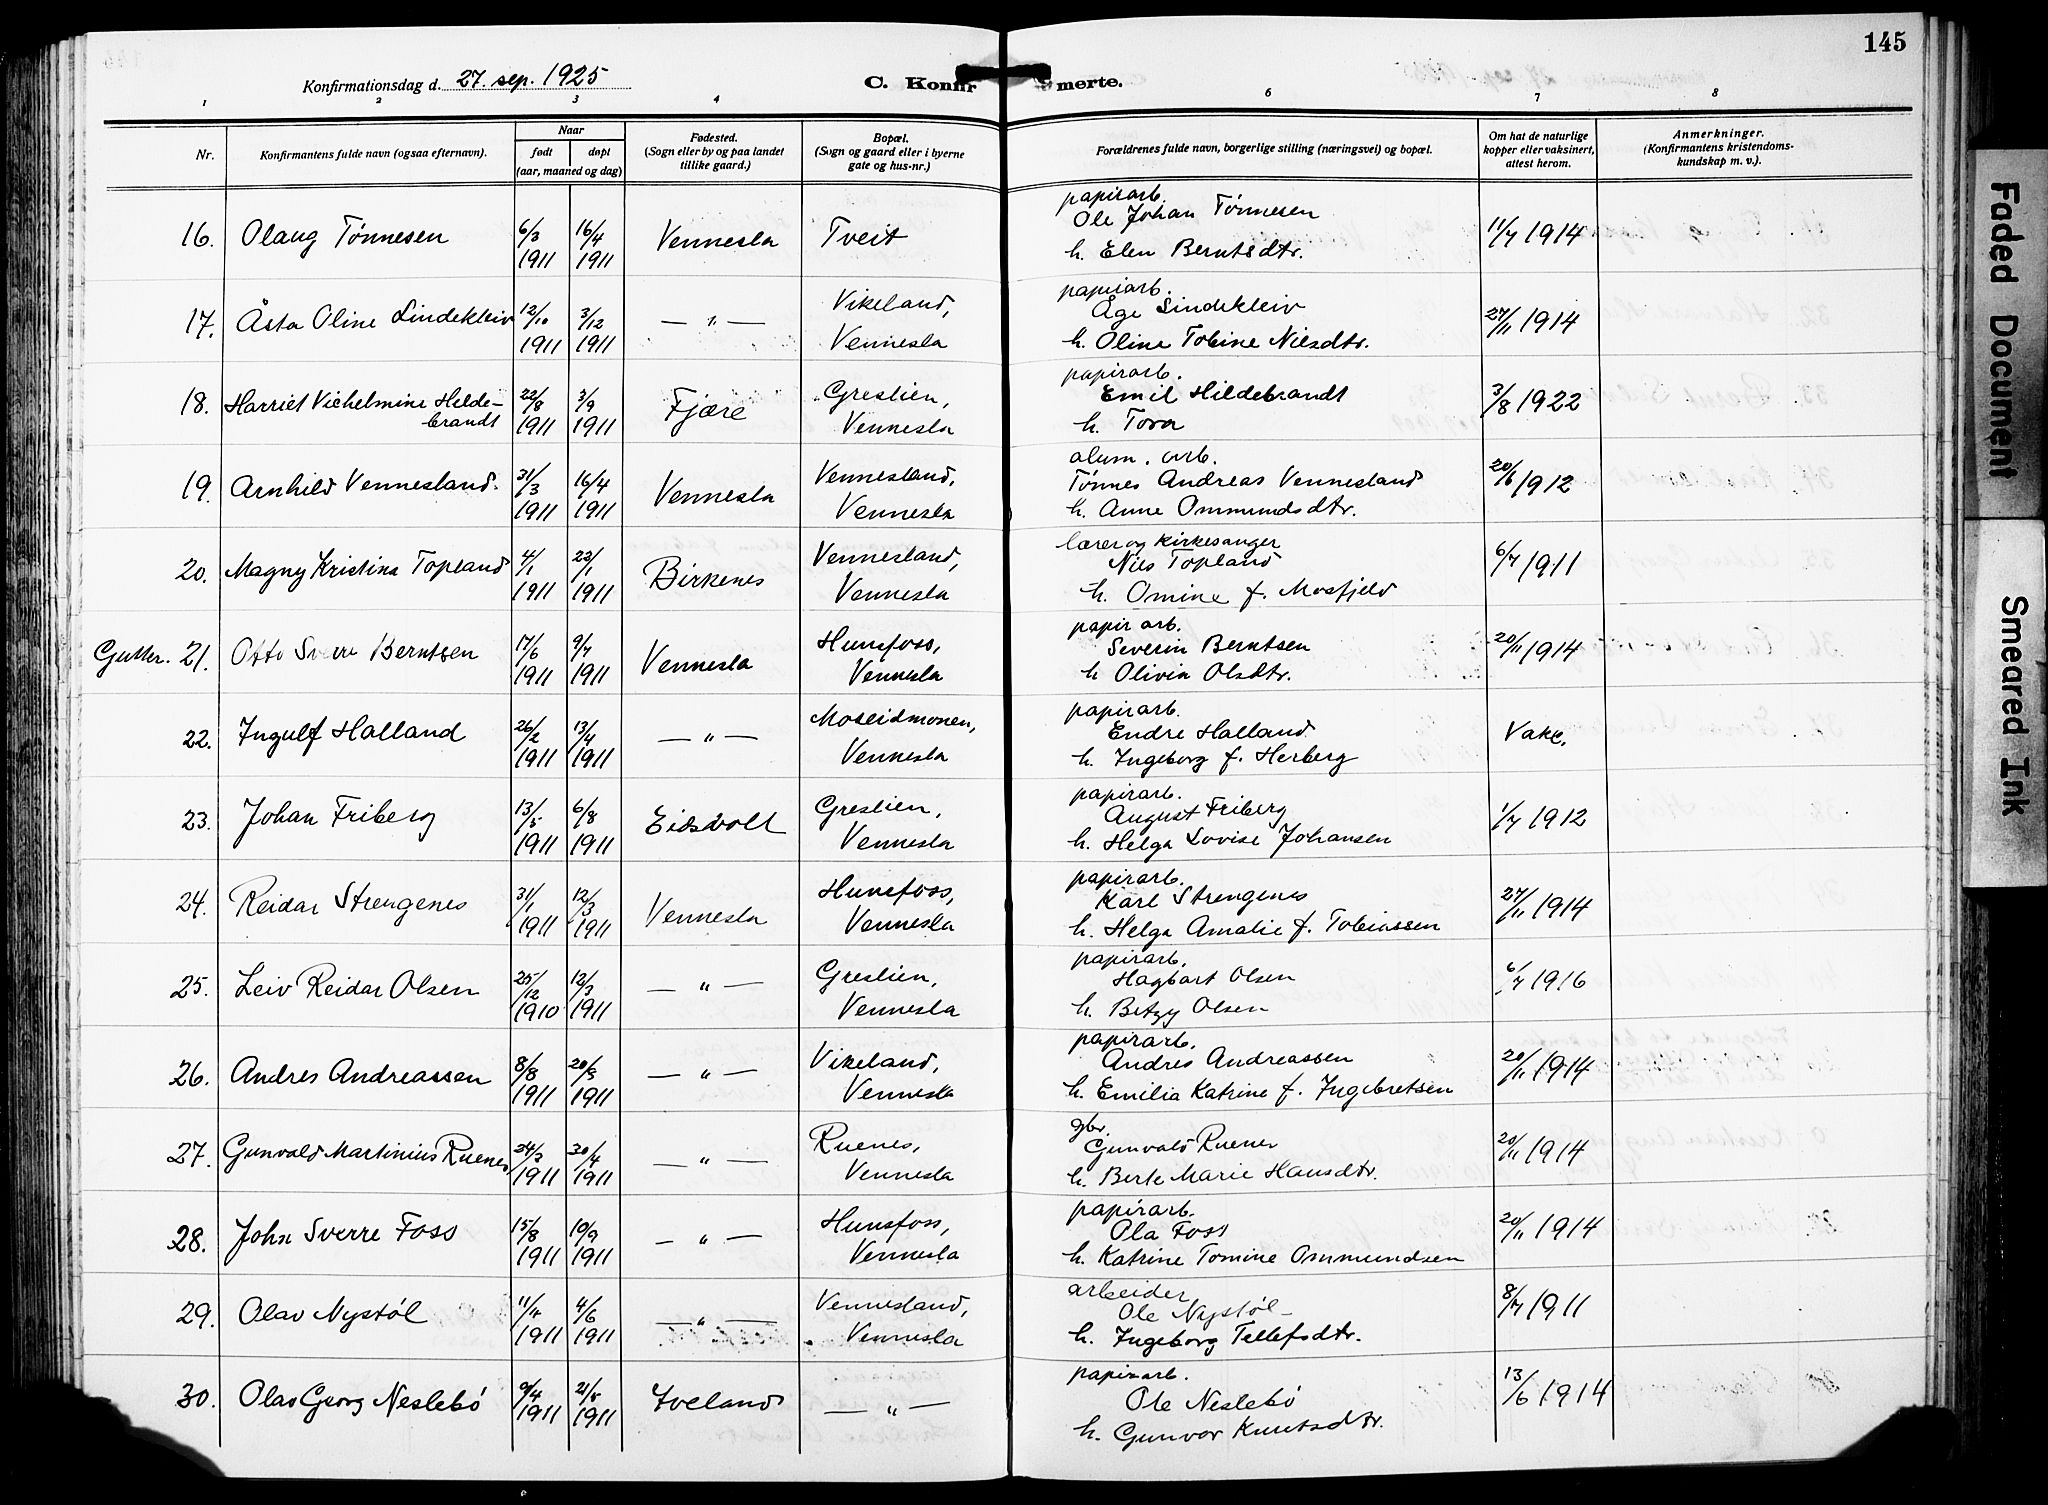 145
Konfirmationsdag d. 27. sep. 1925
C. Konfir merte.
1 2 3 4 6 7 8
Nr.
Konfirmantens fulde navn (ogsaa efternavn).
Naar
født
døpt
(aar, maaned og dag)
Fødested.
(Sogn eller by og paa landet
tillike gaard.)
Bopæl.
(Sogn og gaard eller i byerne
gate og hus-nr.)
Forældrenes fulde navn, borgerlige stilling (næringsvei) og bopæl.
Om hat de naturlige
kopper eller vaksinert,
attest herom.
Anmerkninger.
(Konfirmantens kristendoms-
kundskap m. v.).
papirarb.
16. Olaug Tønnesen 6/3 1911 16/4 1911 Vennesla Tveit Ole Johan Tønnesen 11/7 1914
h. Elen Berntsdtr.
papirarb.
17. Åsta Oline Lindekleiv 12/10 1911 3/12 1911 — " — Vikeland, Vennesla Åge Lindekleiv 27/11 1914
h. Oline Tobine Nilsdtr.
papirarb.
18. Harriet Vilhelmine Hilde-
brandt 22/8 1911 3/9 1911 Fjære Greslien, Vennesla Emil Hildebrandt 3/8 1922
h. Tora
alum. arb.
19. Arnhild Vennesland. 31/3 1911 16/4 1911 Vennesla Vennesland, Vennesla Tønnes Andreas Vennesland 20/6 1912
h. Anne Ommundsdtr.
lærer og kirkesanger
20. Magny Kristine Topland 4/1 1911 22/1 1911 Birkenes Vennesland, Vennesla Nils Topland 6/7 1911
h. Omine f. Mosfjeld
papirarb.
Gutter. 21. Otto Sverre Berntsen 17/6 1911 9/7 1911 Vennesla Hunsfoss, Vennesla Severin Berntsen 20/11 1914
h Olivia Olsdtr.
papirarb.
22. Ingulf Halland 26/2 1911 13/4 1911 — " — Moseidmonen, Vennesla Endre Halland Vakc.
h. Ingeborg f. Herberg
papirarb.
23. Johan Friberg 13/5 1911 6/8 1911 Eidsvoll Greslien, Vennesla August Friberg 1/7 1912
h. Helga Lovise Johansen
papirarb.
24. Reidar Strengenes 31/1 1911 12/3 1911 Vennesla Hunsfoss, Vennesla Karl Strengenes 27/11 1914
h. Helga Amalie f. Tobiassen
papirarb.
25. Leiv Reidar Olsen 25/12 1910 12/3 1911 — " — Greslien, Vennesla Hagbart Olsen 6/7 1916
h. Betzy Olsen
papirarb.
26. Andres Andreassen 8/8 1911 20/8 1911 — " — Vikeland, Vennesla Andres Andreassen 20/11 1914
h. Emilia Katrine f. Ingebretsen
gbr.
27. Gunvald Martinius Ruenes 24/3 1911 30/4 1911 — " — Ruenes, Vennesla Gunvald Ruenes 20/11 1914
h. Berte Marie Hansdtr.
papirarb.
28. John Sverre Foss 15/8 1911 10/9 1911 — " — Hunsfoss, Vennesla Ola Foss 20/11 1914
h. Katrine Tomine Ommundsen
arbeider
29. Olav Nystøl 11/4 1911 4/6 1911 — " — Vennesland, Vennesla Ole Nystøl 8/7 1911
h. Ingeborg Tellefsdtr.
papirarb.
30. Olav Georg Neslebö 9/4 1911 21/5 1911 Iveland — " — Ole Neslebö 13/6 1914
h. Gunvor Knutsdtr.
Faded Document
Smeared Ink